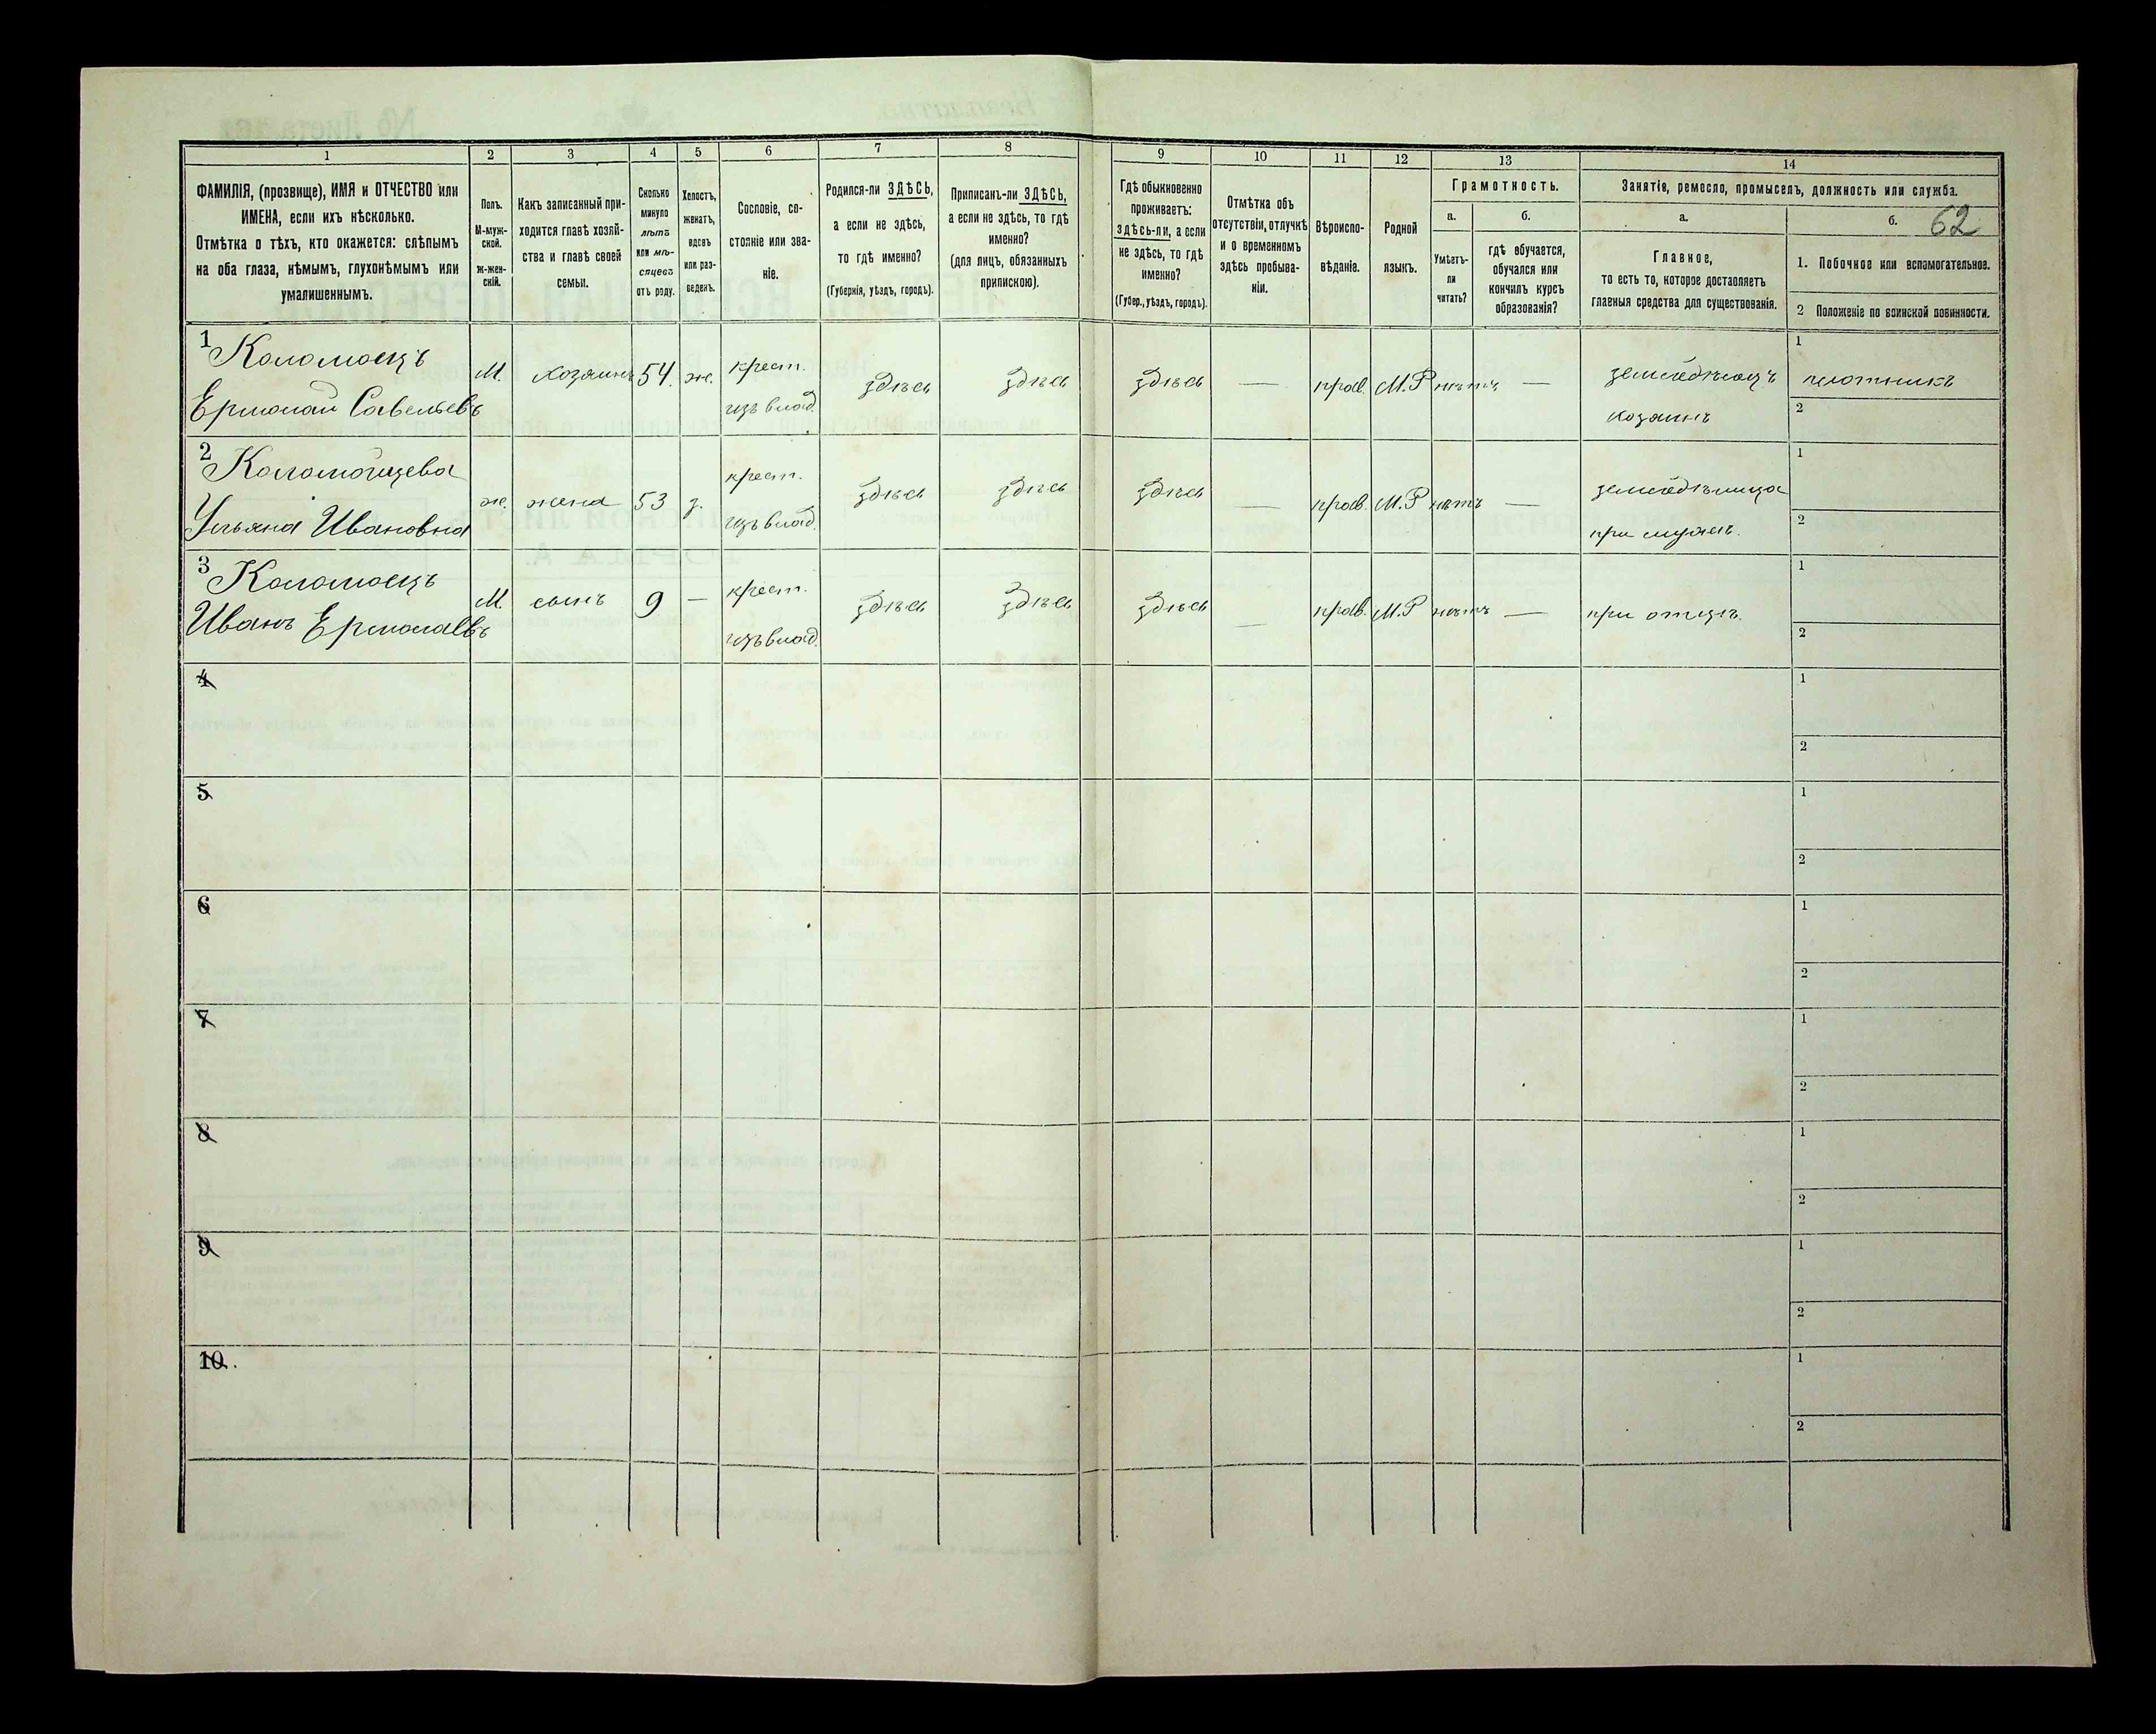 1 2 3 4 5 6 7 8 9 10 11 12 13 14
ФАМИЛІЯ, (прозвище), ИМЯ и ОТЧЕСТВО или
ИМЕНА, если ихъ нѣсколько.
Отмѣтка о тѣхъ, кто окажется: слѣпымъ
на оба глаза, нѣмымъ, глухонѣмымъ или
умалишеннымъ.
Полъ.
М-муж-
ской.
ж-жен-
скій.
Какъ записанный при-
ходится главѣ хозяй-
ства и главѣ своей
семьи.
Сколько
минуло
лѣтъ
или мѣ-
сяцевъ
отъ роду.
Холостъ,
женатъ,
вдовъ
или раз-
веденъ.
Сословіе, со-
стояніе или зва-
ніе.
Родился-ли ЗДѢСЬ,
а если не здѣсь,
то гдѣ именно?
(Губернія, уѣздъ, городъ).
Приписанъ-ли ЗДѢСЬ,
а если не здѣсь, то гдѣ
именно?
(для лицъ, обязанныхъ
припискою).
Гдѣ обыкновенно
проживаетъ:
здѣсь-ли, а если
не здѣсь, то гдѣ
именно?
(Губер., уѣздъ, городъ).
Отмѣтка объ
отсутствіи, отлучкѣ
и о временномъ
здѣсь пребыва-
ніи.
Вѣроиспо-
вѣданіе.
Родной
языкъ.
Грамотность.
а.
Умѣетъ-
ли
читать?
б.
гдѣ обучается,
обучался или
кончилъ курсъ
образованія?
Занятіе, ремесло, промыселъ, должность или служба.
а.
Главное,
то есть то, которое доставляетъ
главныя средства для существованія.
б. 62
1. Побочное или вспомогательное.
2 Положеніе по воинской повинности.
1 Коломоецъ
Ермолай Савельевъ
М. хозяинъ 54. ж.
крест.
изъ влад.
здѣсь здѣсь здѣсь — прав. М.Р нѣтъ —
земледѣлецъ
хозяинъ
1 плотникъ
2
2 Коломойцева
Ульяна Ивановна
ж. жена 53 з.
крест.
изъ влад.
здѣсь здѣсь здѣсь — прав. М.Р нѣтъ —
земледѣлица
при мужѣ.
1
2
3 Коломоецъ
Иванъ Ермолаевъ
М. сынъ 9 —
крест.
изъ влад.
здѣсь здѣсь здѣсь — прав. М.Р нѣтъ —
при отцѣ.
1
2
4
1
2
5
1
2
6
1
2
7
1
2
8
1
2
9
1
2
10.
1
2